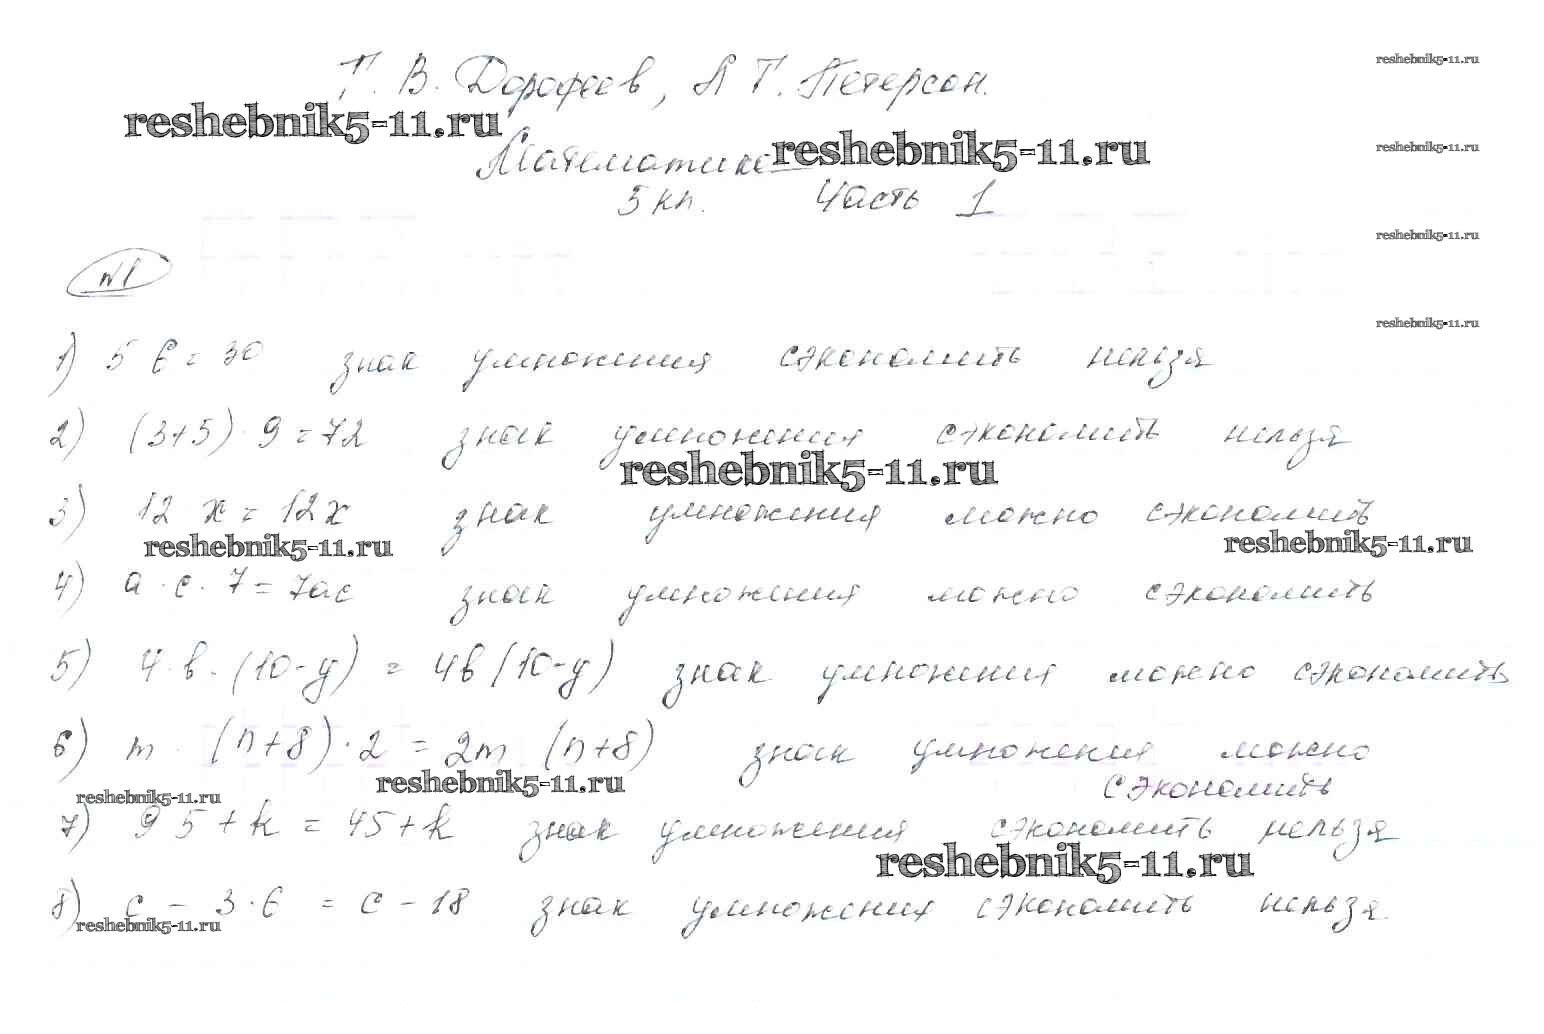 Г. В. Дорофеев, Л Г. Петерсон.
reshebnik5-11.ru
reshebnik5-11.ru
Математика
reshebnik5-11.ru
reshebnik5-11.ru
5 кл. Часть 1
reshebnik5-11.ru
№1
reshebnik5-11.ru
1) 5 6 = 30 знак умножения сэкономить нельзя
2) (3+5) · 9 = 72 знак умножения сэкономить нельзя
reshebnik5-11.ru
3) 12 x = 12x знак умножения можно сэкономить
reshebnik5-11.ru
reshebnik5-11.ru
4) a · c · 7 = 7ac знак умножения можно сэкономить
5) 4 · b · (10-y) = 4b (10-y) знак умножения можно сэкономить
6) m · (n+8) · 2 = 2m (n+8) знак умножения можно
сэкономить
reshebnik5-11.ru
reshebnik5-11.ru
7) 9 5 + k = 45 + k знак умножения сэкономить нельзя
reshebnik5-11.ru
8) c - 3 · 6 = c - 18 знак умножения сэкономить нельзя.
reshebnik5-11.ru